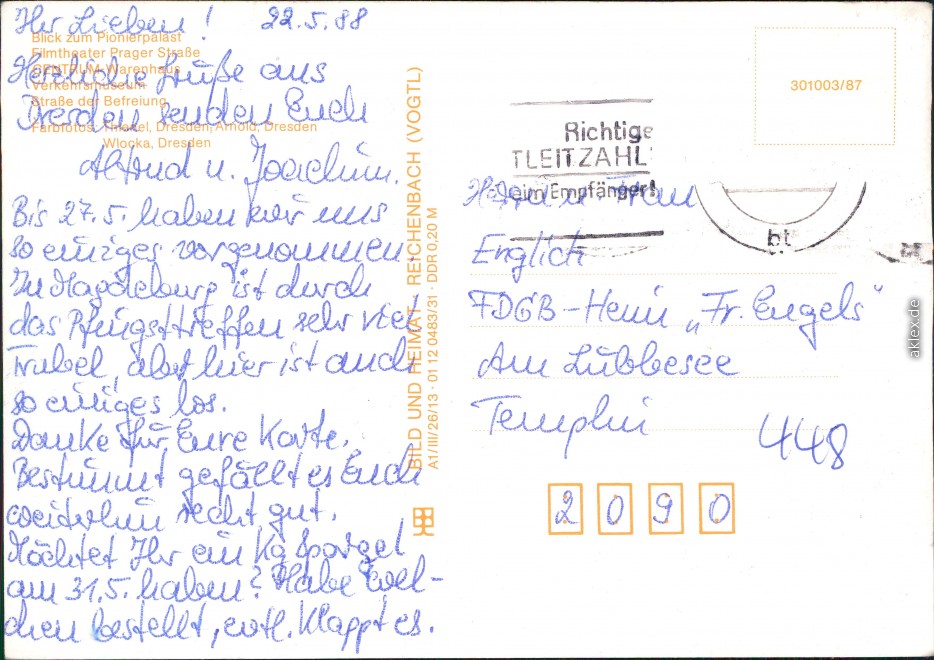 Ihr Lieben! 22.5.88
Blick zum Pionierpalast
Filmtheater Prager Straße
CENTRUM-Warenhaus
Verkehrsmuseum
Straße der Befreiung
Farbfotos: Thiekel, Dresden, Arnold, Dresden
Wlocka, Dresden
Herzliche Grüße aus
Dresden senden Euch
Altrud u. Joachim.
Bis 27.5. haben wir uns
so einiges vorgenommen.
In Magdeburg ist durch
das Pfingsttreffen sehr viel
Trubel, aber hier ist auch
so einiges los.
Danke für Eure Karte.
Bestimmt gefällt es Euch
weiterhin recht gut.
Möchtet Ihr ein Kg Spargel
am 31.5. haben? Habe wel-
chen bestellt, evtl. klappt es.
BILD UND HEIMAT REICHENBACH (VOGTL)
A1/III/26/13 · 01 12 0483/31 · DDR 0,20 M
301003/87
Richtige
TLEITZAHL
beim Empfänger!
bt
Herrn u. Frau
Englich
FDGB-Heim „Fr. Engels"
Am Lübbesee
Templin
448
2090
aklex.de